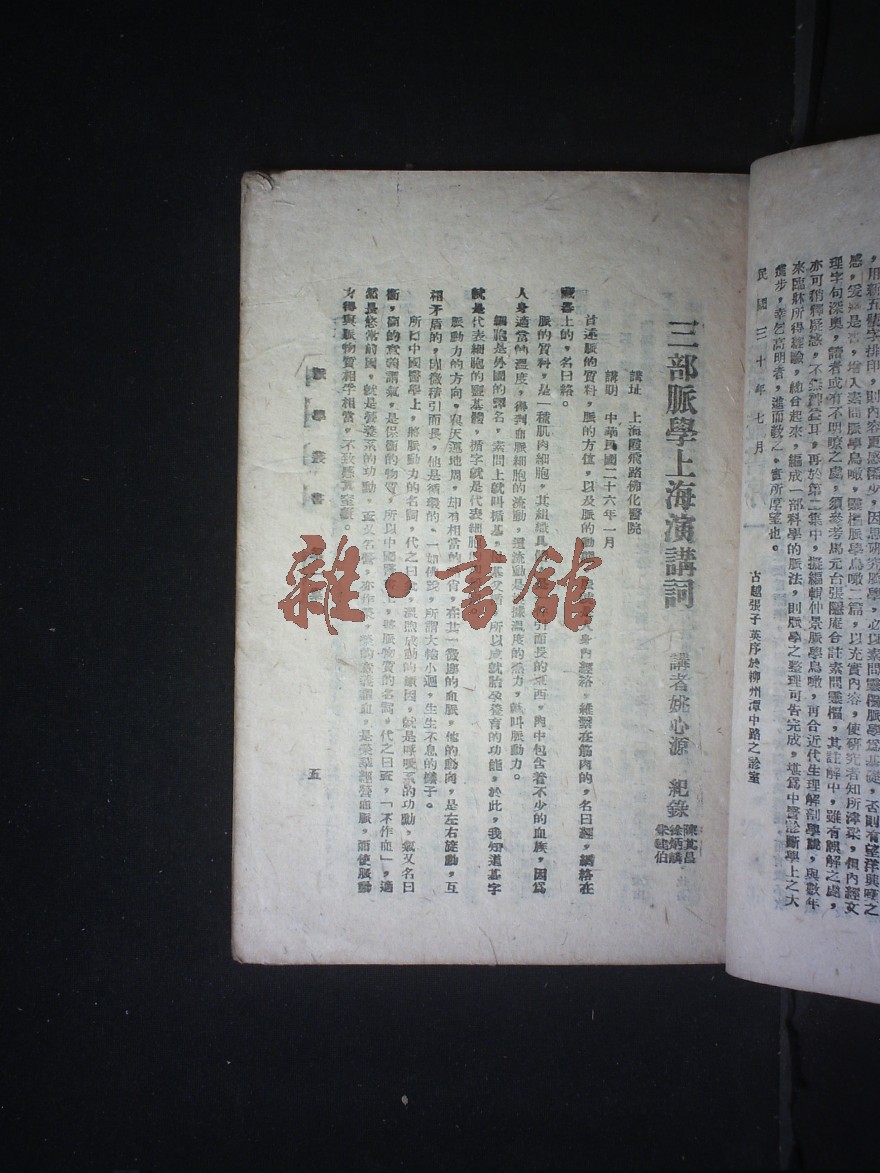 ，用新五號字排印，則內容更感鮮少，因思研究脈學，必以素問靈樞脈學爲基礎，否則有望洋興嘆之
感，爰於是書，增入素問脈學鳥瞰，靈樞脈學鳥瞰二篇，以充實內容，使研究者知所津梁，但內經文
理字句深奧，讀者或有不明瞭之處，須參考馬元台張隱庵合註素問靈樞，其註解中，雖有誤解之處，
亦可稍釋疑惑，不無裨益耳，再於第二集中，擬編輯仲景脈學鳥瞰，再合近代生理解剖學說，與數年
來臨牀所得經驗，結合起來，編成一部科學的脈法，則脈學之整理可告完成，堪爲中醫診斷學上之大
進步，幸乞高明者，進而教之，實所厚望也。
民國三十年七月
古越張子英序於柳州潭中路之診室
三部脈學上海演講詞
講者姚心源 紀錄
陳其昌
徐炳麟
講址 上海霞飛路佛化醫院
講期 中華民國二十六年一月
首述脈的質料，脈的方位，以及脈的動 身內經絡，維繫在筋肉的，名曰經，網絡在
臟器上的，名曰絡。
脈的質料，是一種肌肉細胞，其組織具 引而長的東西，肉中包含着不少的血族，因爲
人身適當的溫度，得到血脈細胞的流動，這流動是 據溫度的熱力，就叫脈動力。
細胞是外國的譯名，素問上就叫循基， 基又當 所以成就胎孕養育的功能，於此，我知道基字
就是代表細胞的靈基體，循字就是代表細胞
脈動力的方向，與天運地周，却有相當的 ，在其一微鄉的血脈，他的動向，是左右旋動，互
相矛盾的，因微積引而長，他是循環的，一如佛說，所謂大輪小迴，生生不息的樣子。
所以中國醫學上，將脈動力的名詞，代之曰 ，溫煦成動的原因，就是呼吸系的功動，氣又名曰
衛，衛的意義謂氣，是保衛的物質，所以中國醫 ，將脈物質的名詞，代之曰 ，「不作血」，適
當長悠常前因，就是營養系的功動， 又名營，亦作榮，榮的意義謂血，是榮華經營血脈，而使脈動
方得與脈物質相平相當，不致 其 。
脈學叢書
五
雜·書館